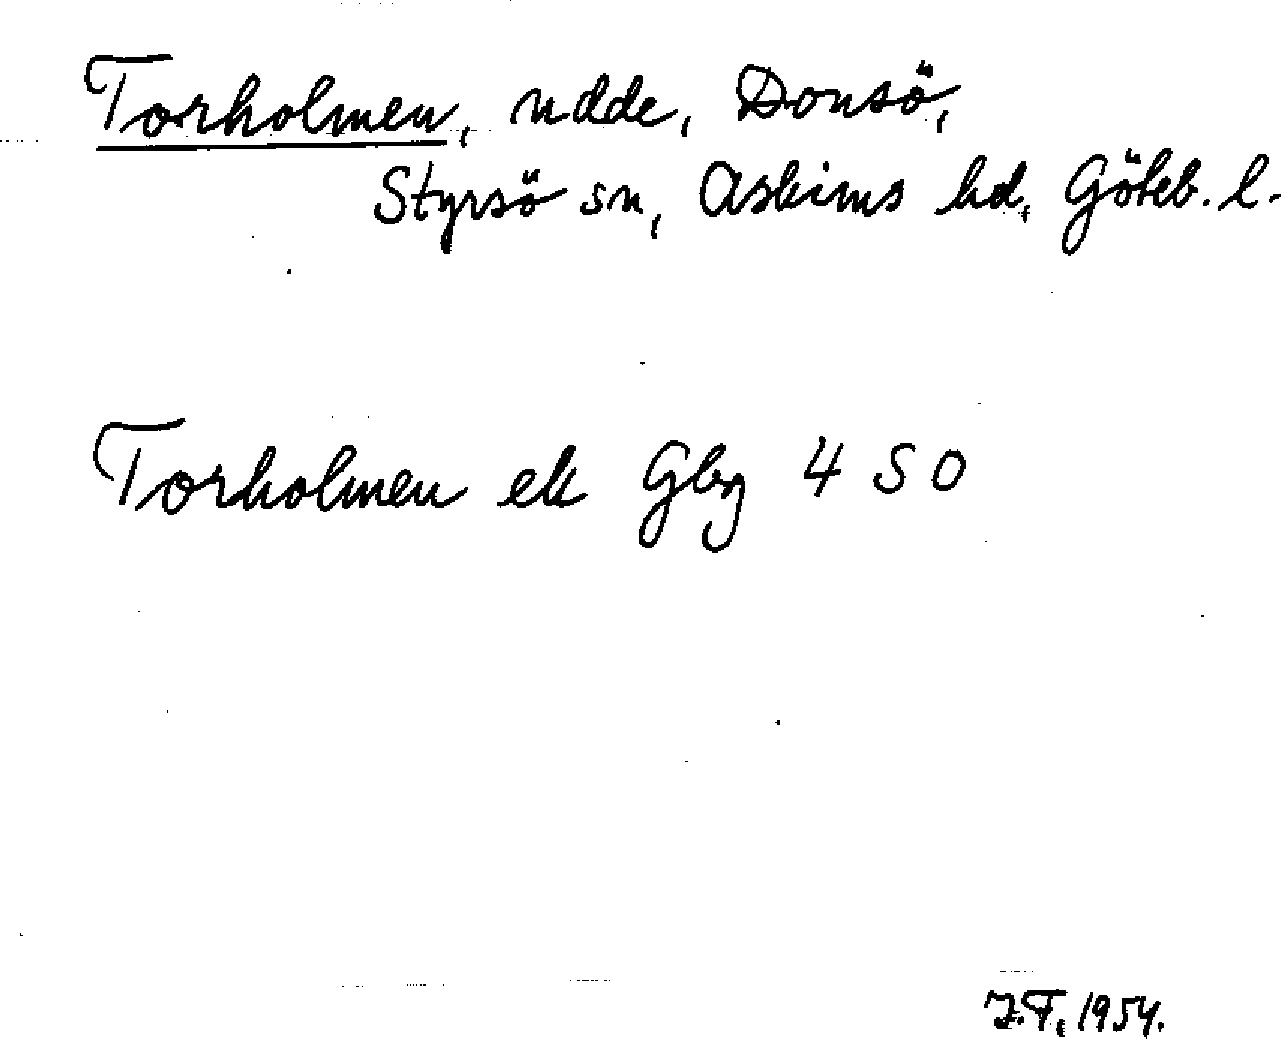 Torholmen, udde, Donsö,
Styrsö sn, Askims hd, Göteb. l.
Torholmen ek Gbg 4 SO
J.T. 1954.